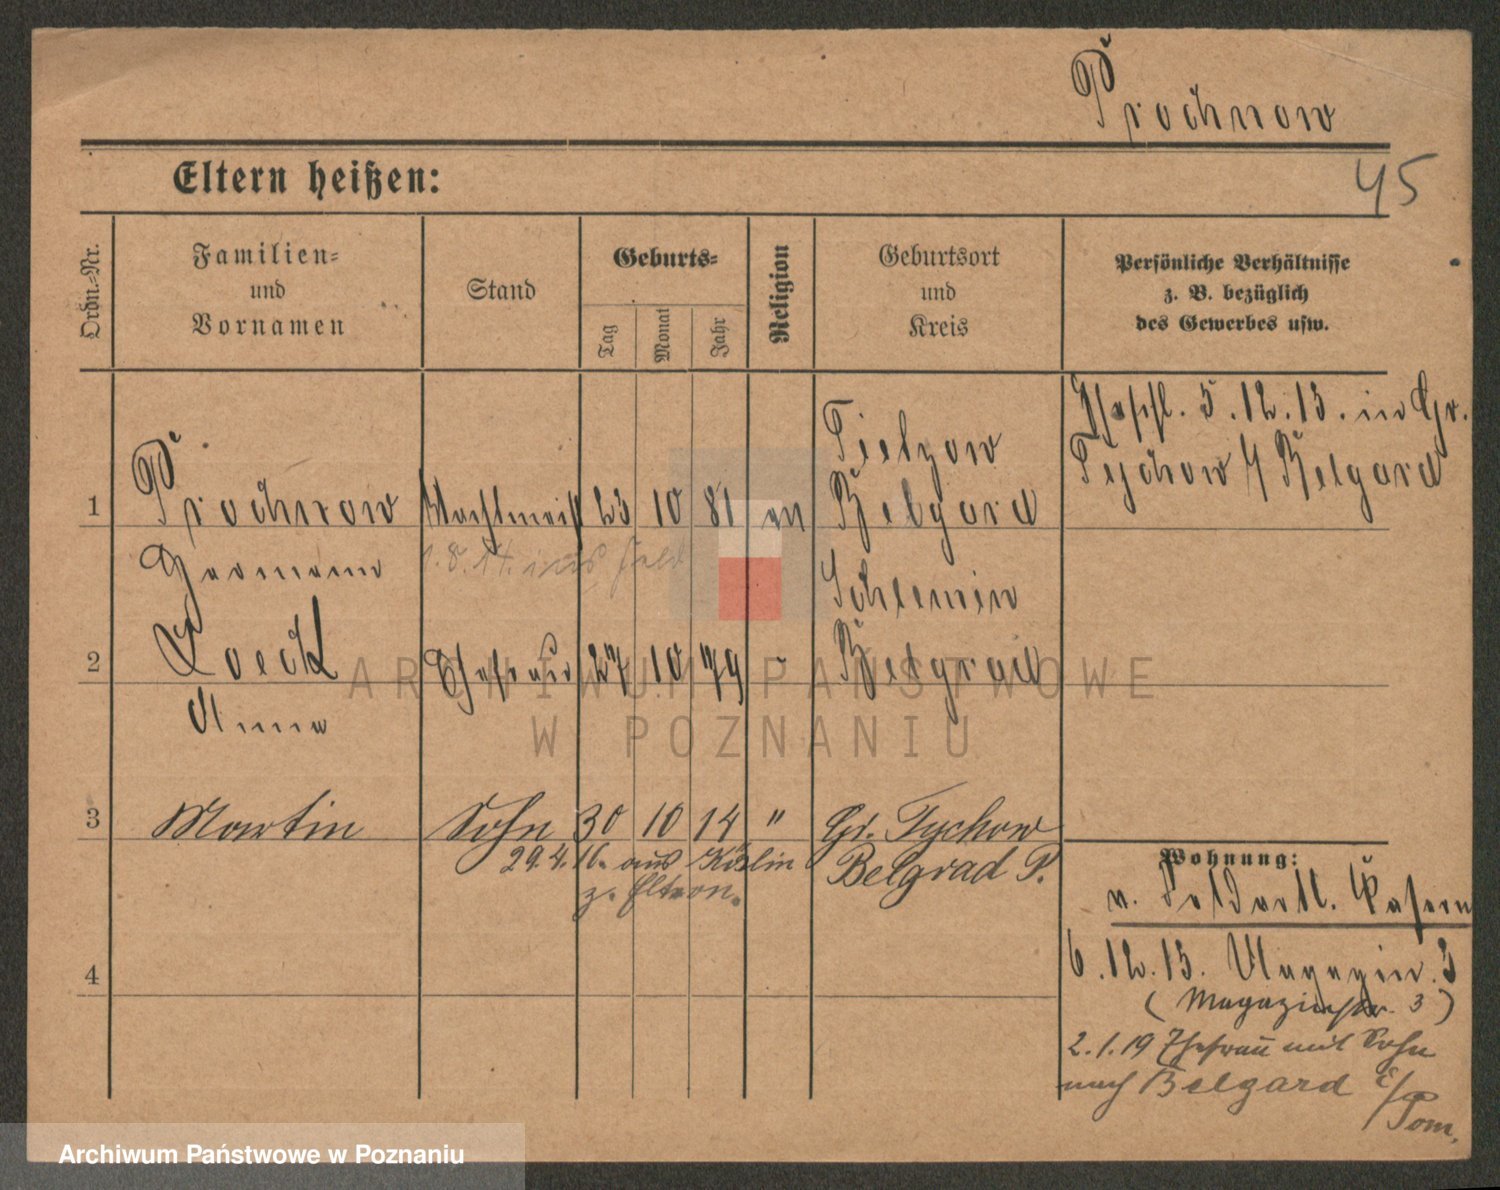 Prochnow
45
Eltern heißen:
Ordn.-Nr.
Familien- und Vornamen
Stand
Geburts-
Tag
Monat
Jahr
Religion
Geburtsort und Kreis
Persönliche Verhältnisse z. B. bezüglich des Gewerbes usw.
Eheschl. 5.12.13. in Gr.
Tychow / Belgard
1 Prochnow Wachtmeist 23 10 81 ev Tietzow Belgard
Hermann
1.8.14. ins Feld
2 Loeck Ehefrau 27 10 79 " Schlennin Belgrad
Anna
3 Martin Sohn 30 10 14 " Gr. Tychow
29.4.16. aus Köslin
z. Eltern.
Belgrad P.
4
Wohnung:
v. Feldartl. Kasern
6.12.13. Magazin. 3
(Magazinstr. 3)
2.1.19 Ehefrau mit Sohn
nach Belgard i/
Pom.
ARCHIWUM PAŃSTWOWE
W POZNANIU
Archiwum Państwowe w Poznaniu